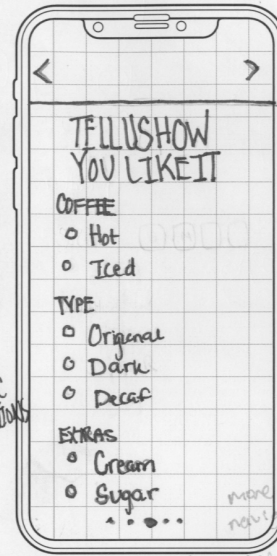 TELL US HOW
YOU LIKE IT
COFFEE
Hot
Iced
TYPE
Original
Dark
Decaf
EXTRAS
Cream
Sugar
more